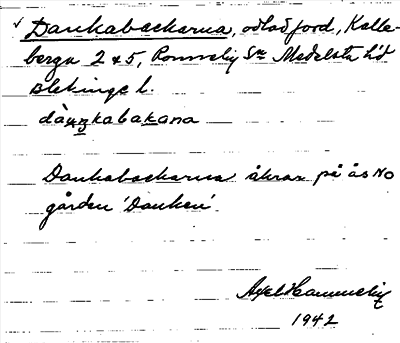 √ Dankabackarna, odlad jord, Kalle-
berga 2 & 5, Ronneby Sn Medelsta hd
Blekinge l.
dàŋkabakana
Dankabackarna åkrar på ås NO
gården 'Danken'.
Axel
1942